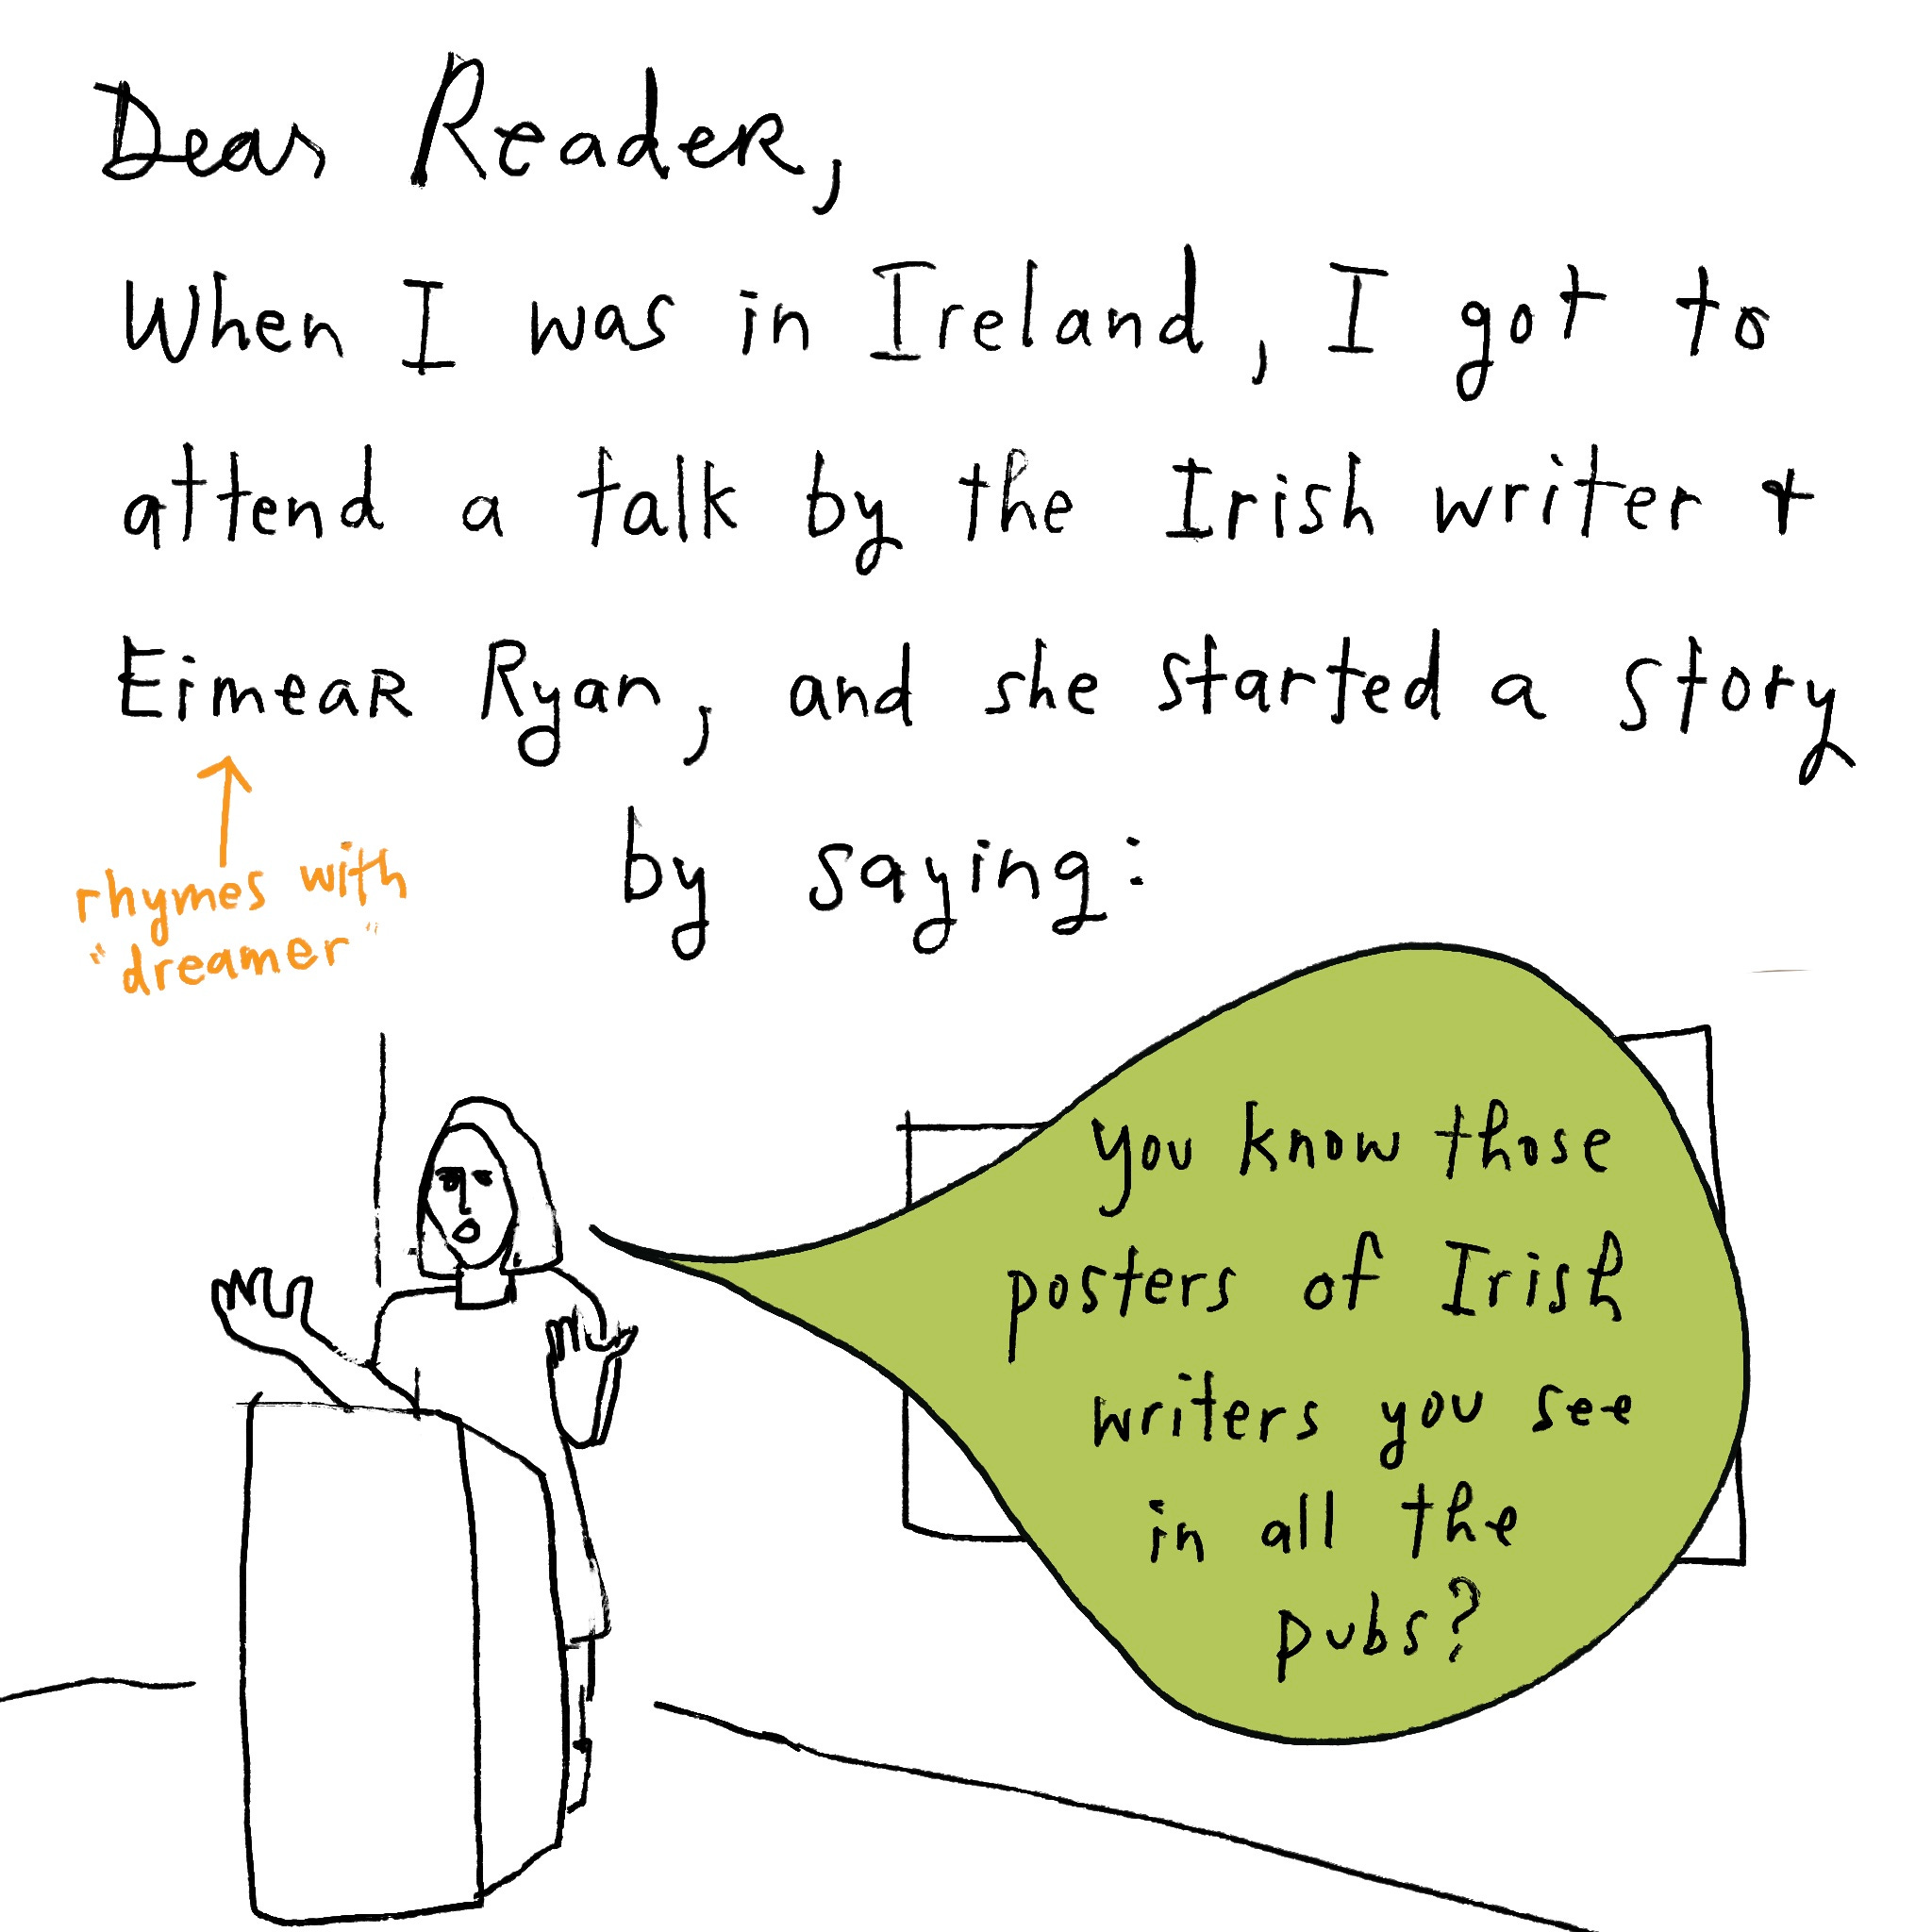 Dear Reader,
When I was in Ireland, I got to
attend a talk by the Irish writer +
Eimear Ryan, and she started a story
by saying:
rhymes with
"dreamer"
you know those
posters of Irish
writers you see
in all the
pubs?